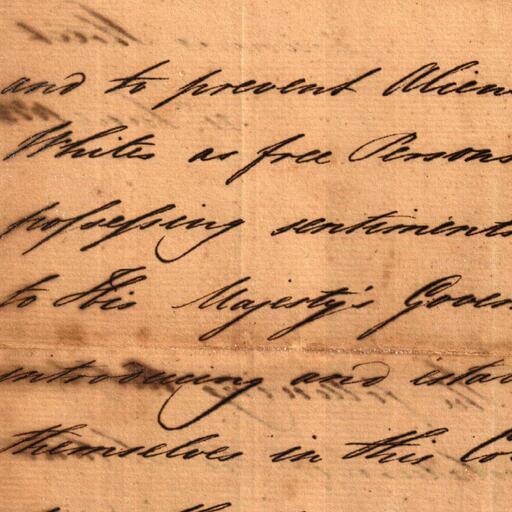 and to prevent Alien
Whites as free Persons
possessing sentiments
to His Majesty's Govern
introducing and estab
themselves in this Co